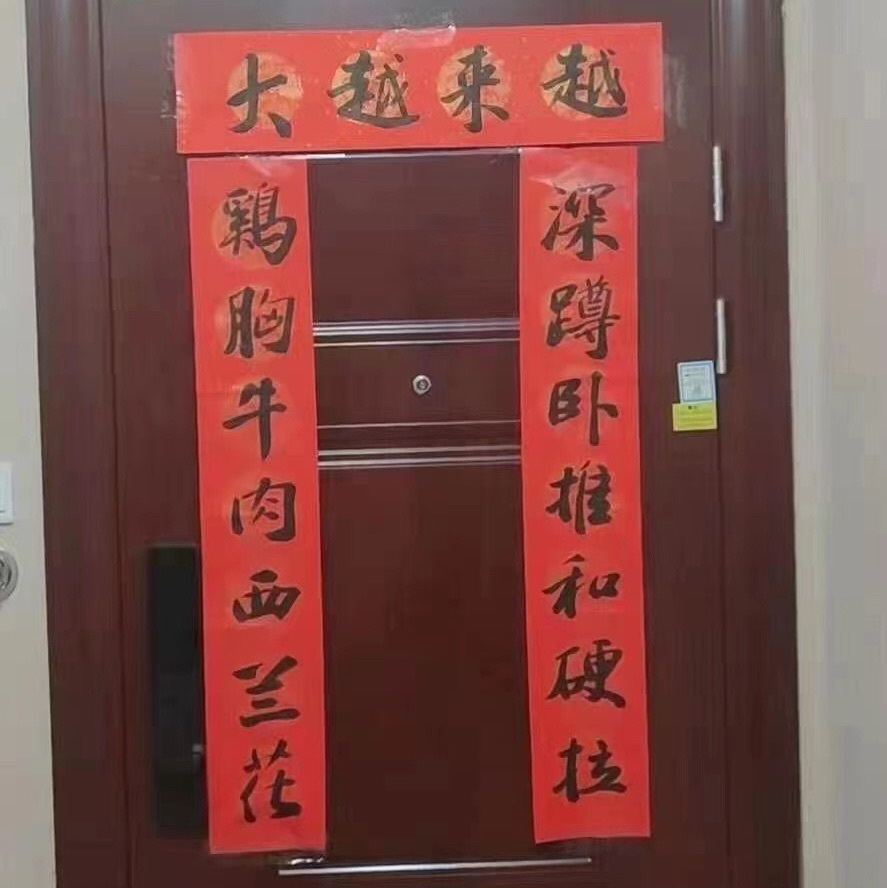 越来越大
深蹲卧推和硬拉
鷄胸牛肉西兰花